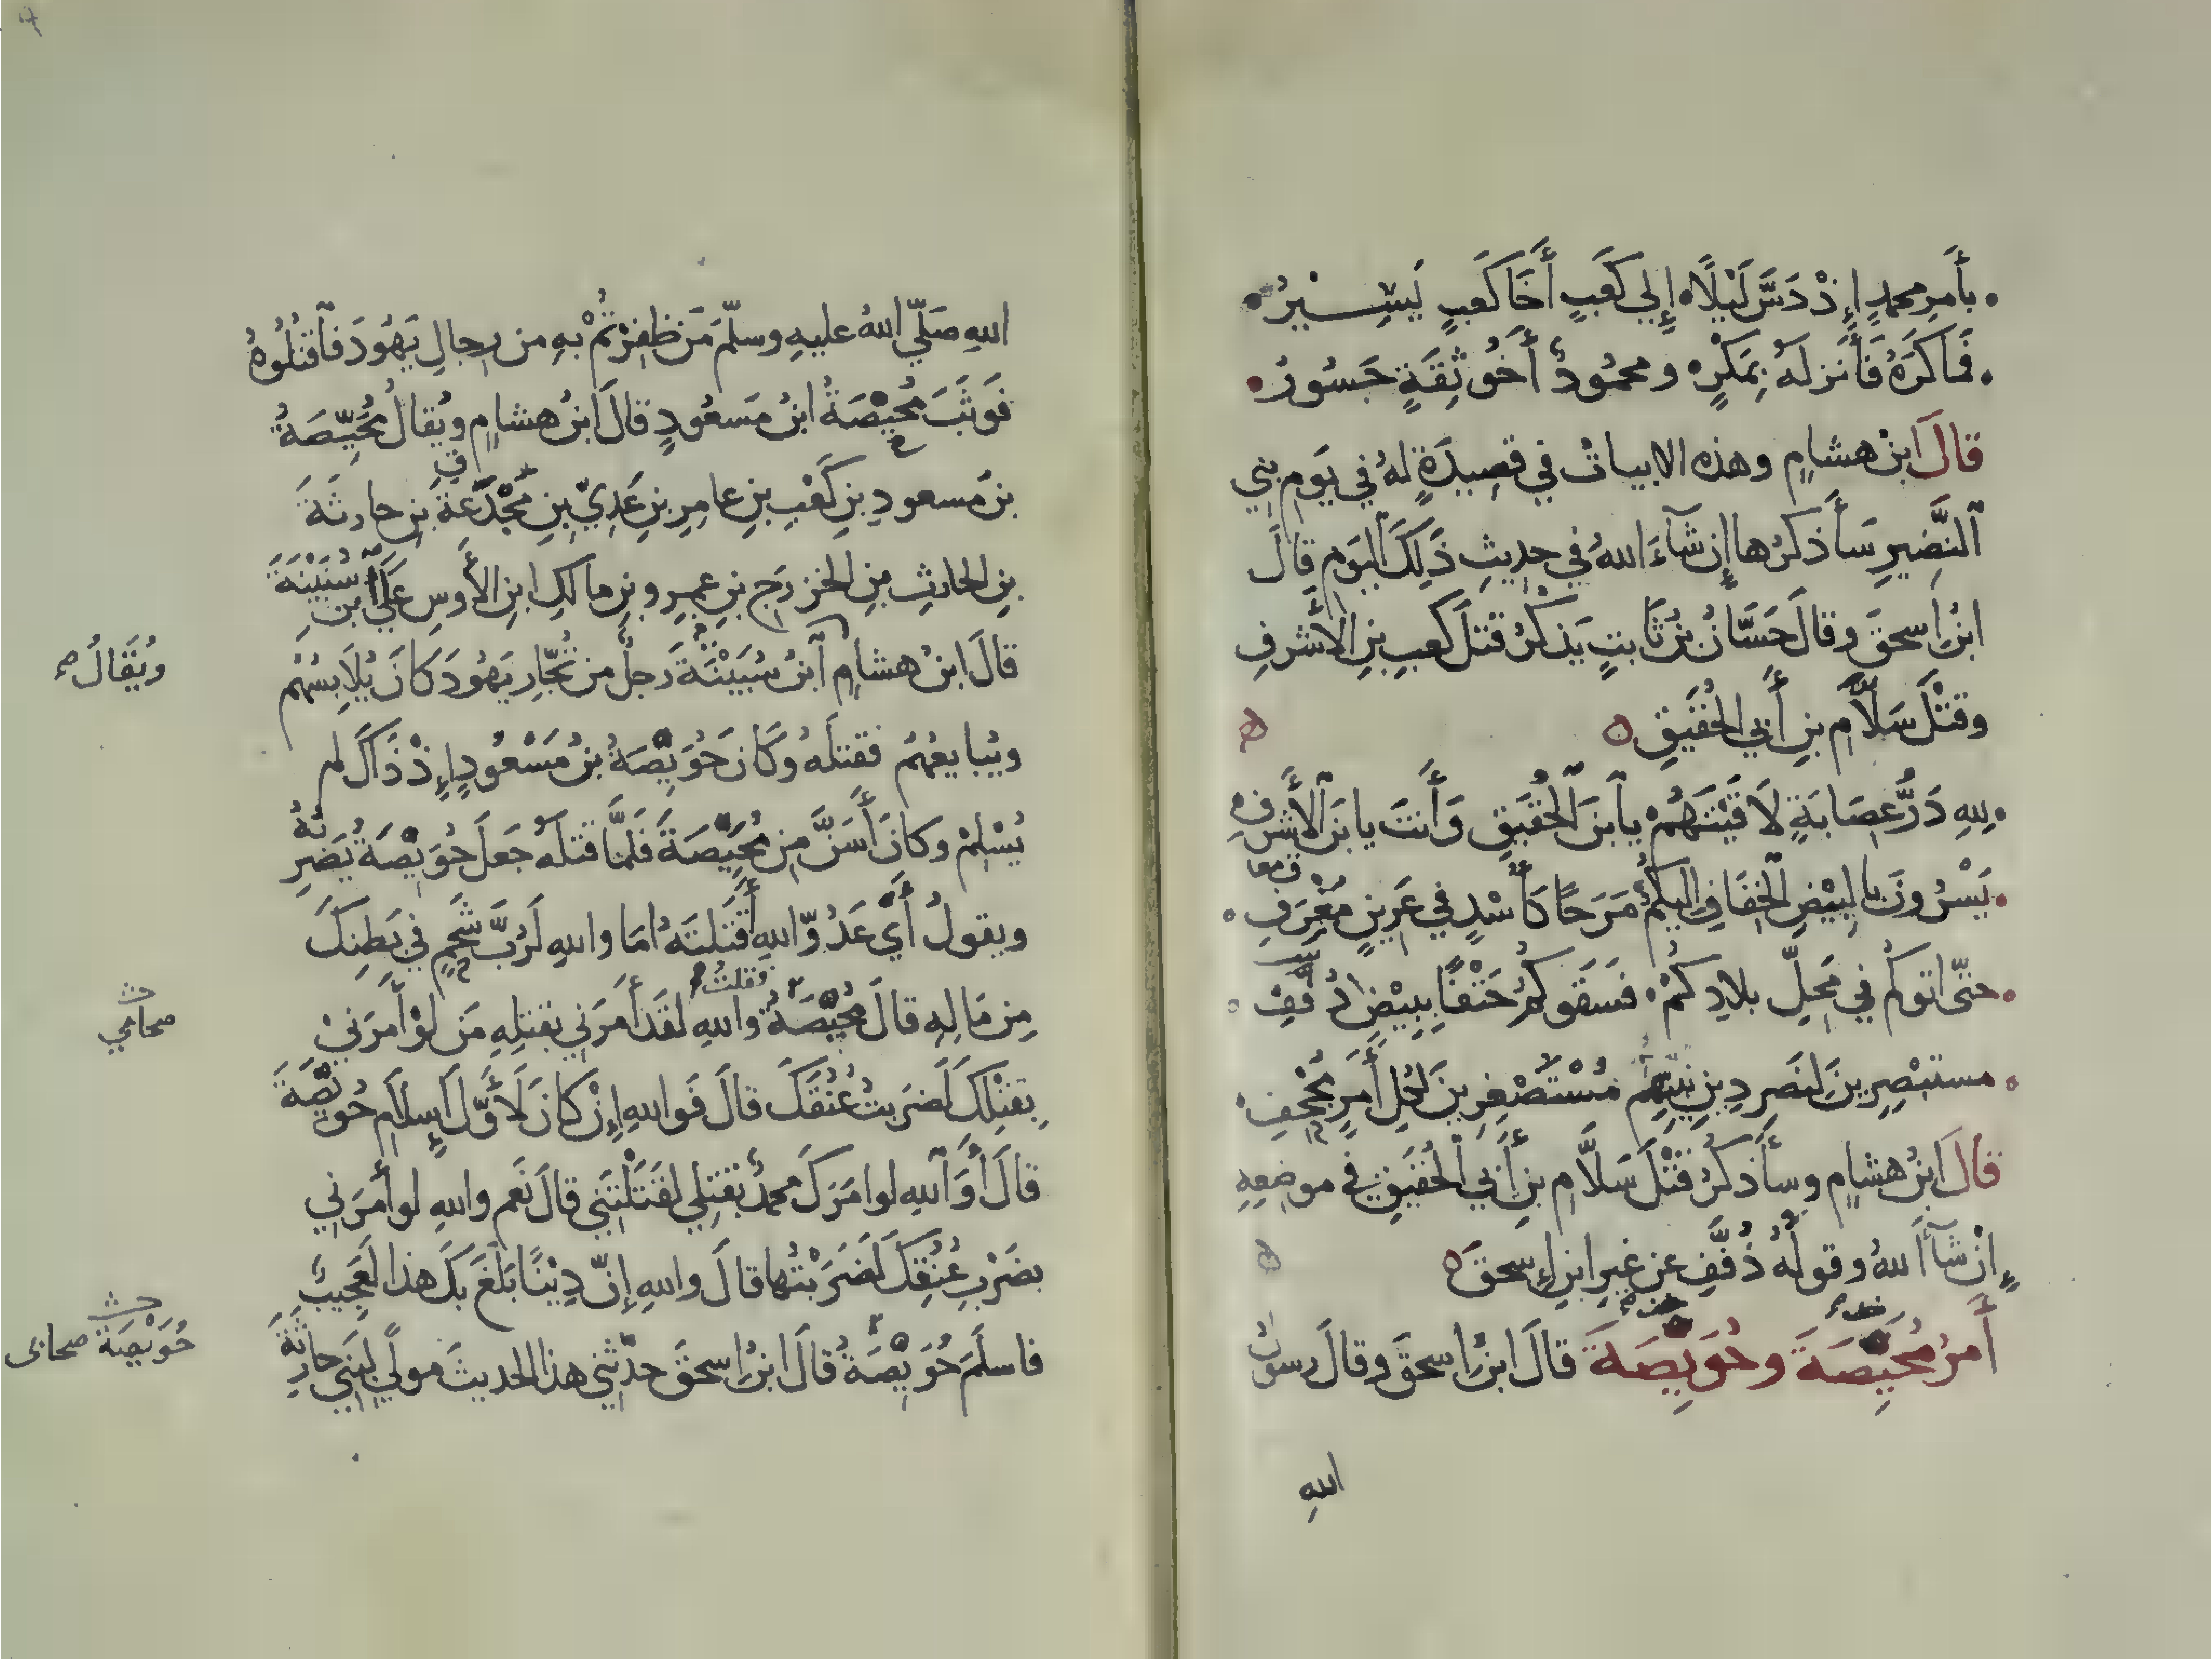 بأَمرِ محمدٍ إِذْ دَسَّ لَيْلًا ۰ إِلي كَعَبٍ أَخَا كَعبٍ يَسِيْرُ
فَمَاكَرَهُ فَأَنزلَهُ بِمَكْرٍ ۰ ومحمُودٌ أَخُو ثِقَةٍ جَسُورُ
قالَ ابنُ هشامٍ وهذه الابياتُ في قصِيدَةٍ لهُ في يَومِ بني
ٱلنَّضِيرِ سَأَذكرُها إِن شَآءَ اللهُ في حديثِ ذَلِكَ اليَومِ قالَ
ابنُ إسحقَ وقالَ حَسَّانُ بنُ ثَابتٍ يَذكُرُ قتلَ كعبِ بنِ الأَشرفِ
وقتْلَ سَلَّامِ بنِ أَبي الحُقَيقِ
لِلهِ دَرُّ عِصَابَةٍ لَاقَيْتَهُمْ يٱبنَ الحُقَيقِ وَأَنتَ يا بنَ الأَشرفِ
يَسْرُونَ بالبِيْضِ الخِفَافِ إِليكُمُ مَرَحًا كَأُسْدٍ في عَرِينٍ مُغْرِفِ
حتّى اتوكُم في مَحِلِّ بلادِكُمْ ۰ فسَقَوكُمُ حَتْفًا بِبِيْضٍ ذُفَّفِ
مستبْصِرِينَ لنَصرِ دِينِ نبيِّهِم مُسْتَصْغِرِينَ لكلِّ أَمرٍ مُجْحِفِ
قالَ ابنُ هشامٍ وسأَذكرُ قَتْلَ سَلَّامِ بنِ أَبي الحُقَيقِ في موضعِهِ
إِنْ شَآءَ اللهُ وقولُهُ ذُفَّفِ عن غيرِ ابنِ إِسحقَ
أَمرُ مُحَيِّصَةَ وحُوَيِّصَةَ قالَ ابنُ إسحقَ وقالَ رسولُ
اللهِ
اللهِ صَلّي اللهُ عليهِ وسلّمَ مَن ظفِرْتُمْ بهِ من رجالِ يَهُودَ فٱقتُلُوهُ
فَوَثَبَ مُحَيِّصَةُ ابنُ مَسعُودٍ قالَ ابنُ هشامٍ ويُقالُ مُحَيِّصَةُ
بنُ مسعودِ بنِ كَعْبِ بنِ عامِرِ بنِ عَدِيِّ بنِ مَجْدَعَةَ بنِ حارثَةَ
بنِ الحارثِ بنِ الخزرَجِ بنِ عمرِو بنِ مالكِ ابنِ الأَوسِ عَلَي ٱبنِ سُنَيْنَةَ
قالَ ابنُ هشامٍ ٱبنُ سُبَيْنَةَ رَجلٌ من تُجّارِ يَهُودَ كانَ يُلَابِسُهُم
ويُقَالُ
ويُبايعُهُم فقتلَهُ وكَانَ حُوَيِّصَةُ بنُ مَسْعُودٍ إِذْ ذَاكَ لم
يُسْلِمْ وكانَ أَسَنَّ مِن مُحَيِّصَةَ فَلَمَّا قتلَهُ جَعلَ حُوَيِّصَةُ يَضرِبُهُ
ويقولُ أَيْ عَدُوَّ اللهِ أَقَتَلتَهُ امَا واللهِ لَرُبَّ شَحْمٍ في بَطنِكَ
مِن مَالِهِ قالَ مُحَيِّصَةُ فقلتُ واللهِ لقَد أَمَرَني بقتلِهِ مَن لوْ أَمَرَنيْ
صحابي
بِقتْلِكَ لَضَربتُ عُنُقَكَ قالَ فَواللهِ إِنْ كانَ لَأَوَّلَ إِسلَامِ حُوَيِّصَةَ
قالَ أَوَٱللهِ لوامَرَكَ محمدٌ بقتلِي لقَتَلْتَني قالَ نَعم واللهِ لو أَمرَنِي
بضَرْبِ عُنُقِكَ لَضَرَبْتُها قالَ واللهِ إِنّ دِيْنًا بَلَغَ بكَ هذا لَعَجِيبٌ
فاسلَمَ حُوَيِّصَةُ قالَ ابنُ إسحقَ حدّثني هذا الحديثَ مولًي لبَني حارِثَةَ
حُوَيْصَة صحابى